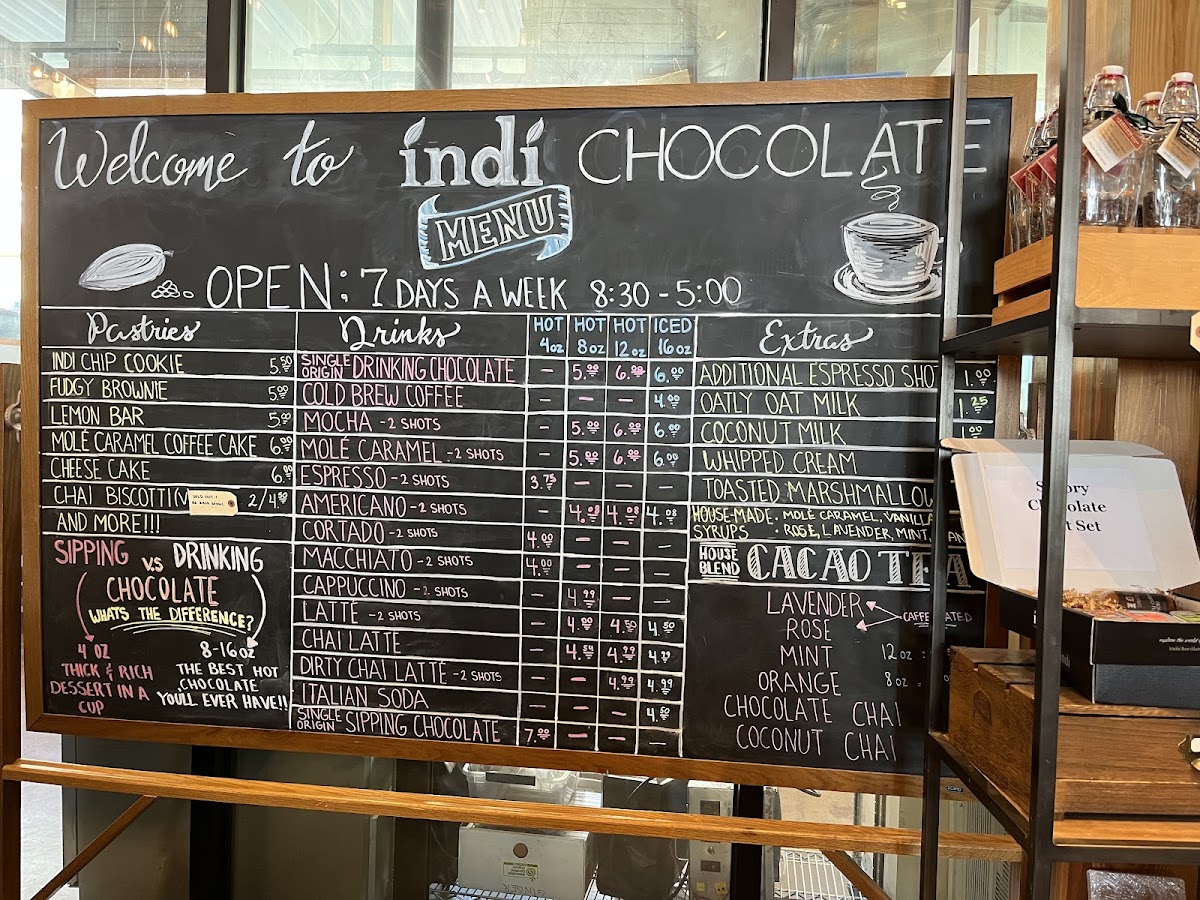 Welcome to indi CHOCOLATE
MENU
OPEN: 7 DAYS A WEEK 8:30 - 5:00
Pastries
INDI CHIP COOKIE 5.50
FUDGY BROWNIE 5.00
LEMON BAR 5.00
MOLÉ CARAMEL COFFEE CAKE 6.00
CHEESE CAKE 6.00
CHAI BISCOTTI (V 2/4.00
AND MORE!!!
SIPPING VS DRINKING
CHOCOLATE
WHATS THE DIFFERENCE?
4 OZ
THICK & RICH
DESSERT IN A
CUP
8-16 OZ
THE BEST HOT
CHOCOLATE
YOU'LL EVER HAVE!!
Drinks HOT 4 oz HOT 8 oz HOT 12 oz ICED 16 oz
SINGLE ORIGIN DRINKING CHOCOLATE - 5.00 6.00 6.00
COLD BREW COFFEE - - - 4.00
MOCHA - 2 SHOTS - 5.00 6.00 6.00
MOLÉ CARAMEL - 2 SHOTS - 5.00 6.00 6.00
ESPRESSO - 2 SHOTS 3.75 - - -
AMERICANO - 2 SHOTS - 4.08 4.08 4.08
CORTADO - 2 SHOTS 4.00 - - -
MACCHIATO - 2 SHOTS 4.00 - - -
CAPPUCCINO - 2 SHOTS - 4.99 - -
LATTE - 2 SHOTS - 4.00 4.50 4.50
CHAI LATTE - 4.54 4.99
DIRTY CHAI LATTE - 2 SHOTS - - 4.99 4.99
ITALIAN SODA - - - 4.50
SINGLE ORIGIN SIPPING CHOCOLATE 7.00 - - -
Extras
ADDITIONAL ESPRESSO SHOT 1.00
OATLY OAT MILK 1.25
COCONUT MILK
WHIPPED CREAM
TOASTED MARSHMALLOW
HOUSE-MADE SYRUPS · MOLÉ CARAMEL, VANILLA
· ROSE, LAVENDER, MINT,
HOUSE BLEND CACAO TEA
LAVENDER
ROSE
CAFFEINATED
MINT 12 oz :
ORANGE 8 oz =
CHOCOLATE CHAI
COCONUT CHAI
Chocolate
Set
GINGER